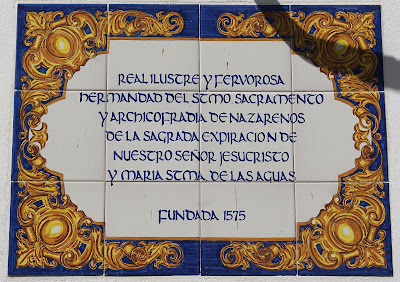 REAL ILUSTRE Y FERVOROSA
HERMANDAD DEL STMO SACRAMENTO
Y ARCHICOFRADIA DE NAZARENOS
DE LA SAGRADA EXPIRACION DE
NUESTRO SEÑOR JESUCRISTO
Y MARIA STMA DE LAS AGUAS
FUNDADA 1575